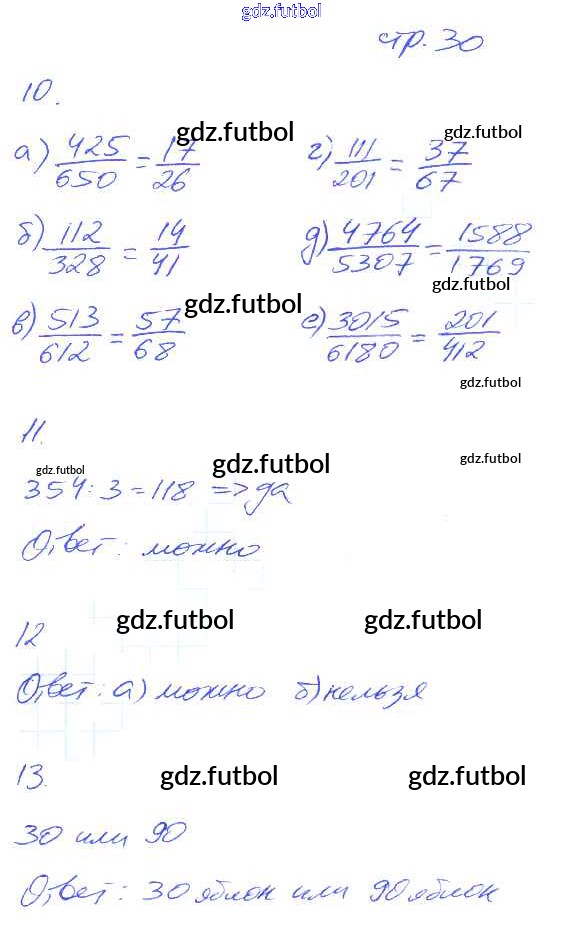 gdz.futbol
стр. 30
10.
а) 425/650 = 17/26 gdz.futbol г) 111/201 = 37/67 gdz.futbol
б) 112/328 = 14/41 д) 4764/5307 = 1588/1769 gdz.futbol
в) 513/612 = 57/68 gdz.futbol е) 3015/6180 = 201/412
gdz.futbol
11.
gdz.futbol gdz.futbol gdz.futbol
354 : 3 = 118 => да
Ответ: можно
12 gdz.futbol gdz.futbol
Ответ: а) можно б) нельзя
13. gdz.futbol gdz.futbol
30 или 90
Ответ: 30 яблок или 90 яблок